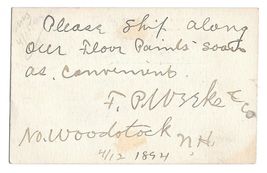 Please Ship along
our Floor Paints soon
as convenient.
F. P. Weeks & Co
No. Woodstock N.H.
4/12 1894